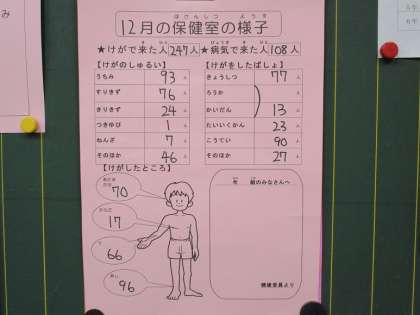 12月の保健室の様子
★けがで来た人247人 ★病気で来た人108人
【けがのしゅるい】
うちみ 93人
すりきず 76人
きりきず 24人
つきゆび 1人
ねんざ 7人
そのほか 46人
【けがをしたばしょ】
きょうしつ 77人
ろうか
かいだん 13人
たいいくかん 23人
こうてい 90人
そのほか 27人
【けがしたところ】
70
17
66
96
年 組のみなさんへ
健康委員より